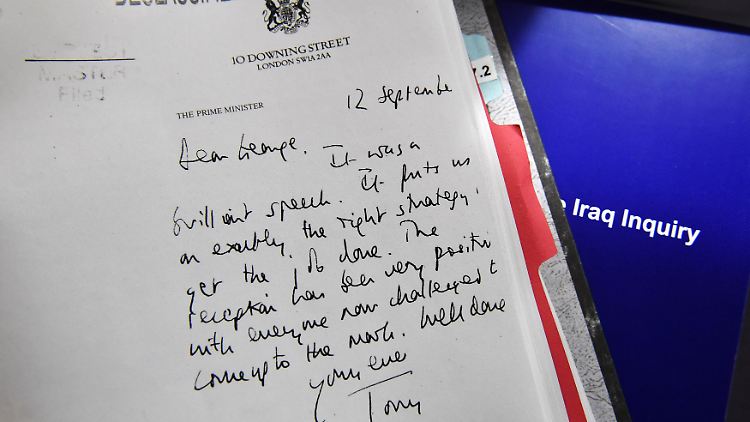 DECLASSIFIED
10 DOWNING STREET
LONDON SW1A 2AA
THE PRIME MINISTER
12 September
Dear George.
It was a
brilliant speech. It puts us
on exactly the right strategy,
get the job done. The
reception has been very positive
with everyone now challenged to
come up to the mark. Well done
yours ever
Tony
7.2
e Iraq Inquiry